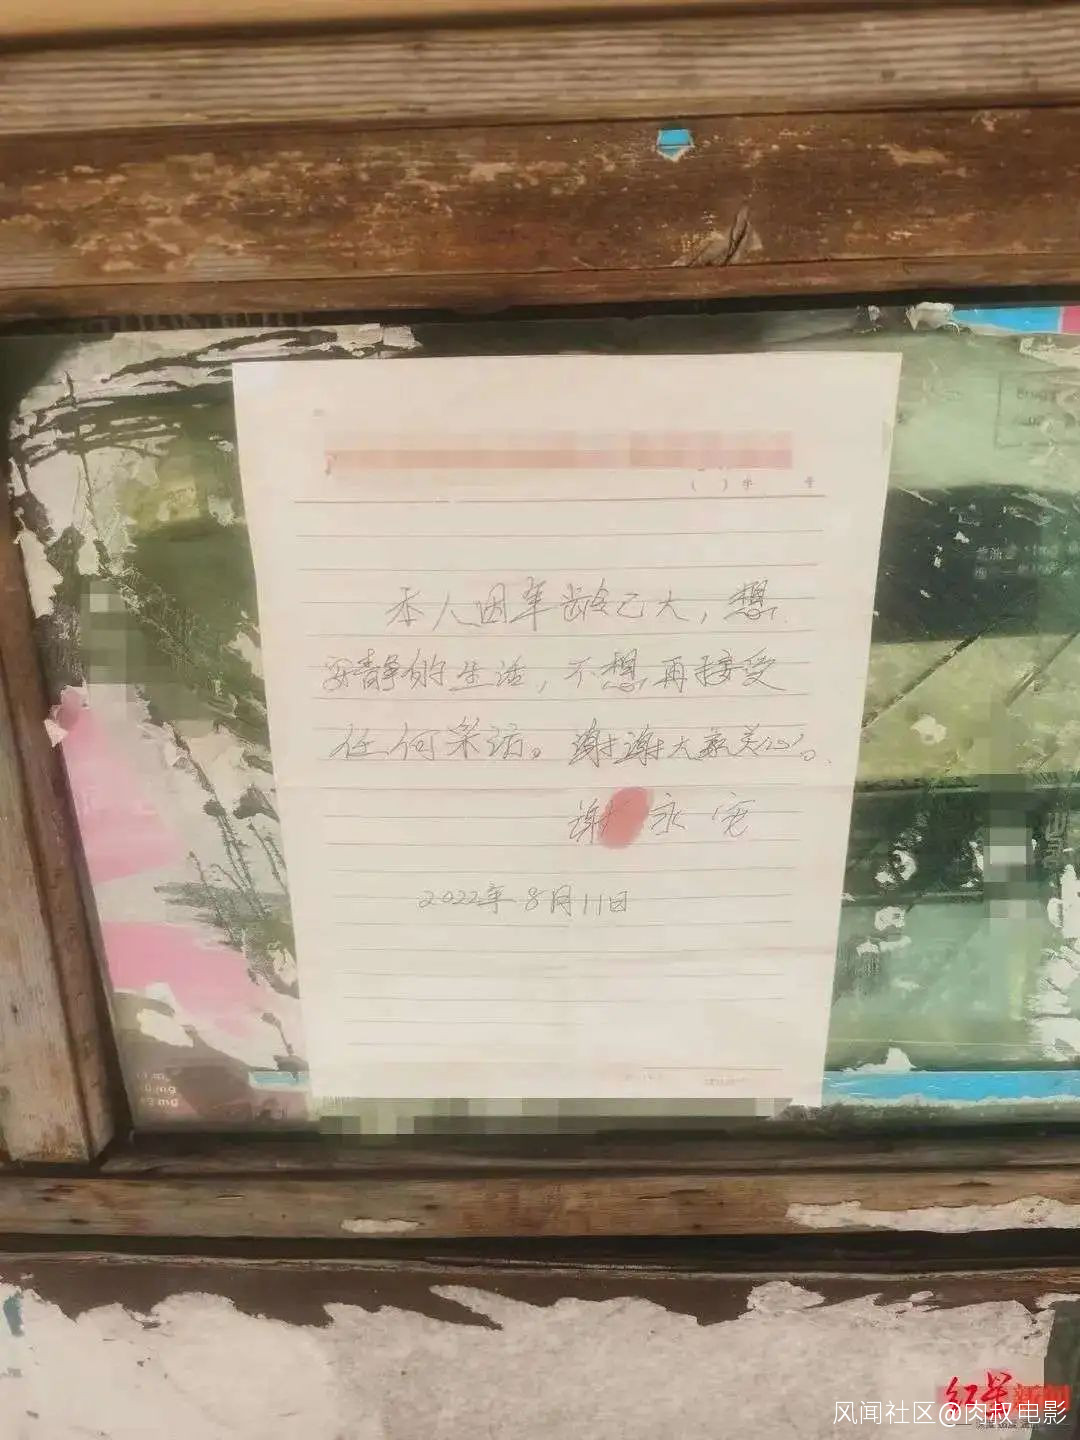 ( ) 字 号
本人因年龄已大，想
安静的生活，不想再接受
任何采访。谢谢大家关心。
谢永宽
2022年8月11日
mg
mg
红星新闻
风闻社区@肉叔电影